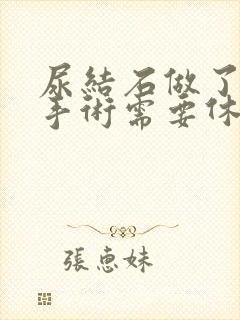 尿結石做了
手術需要休
張惠妹